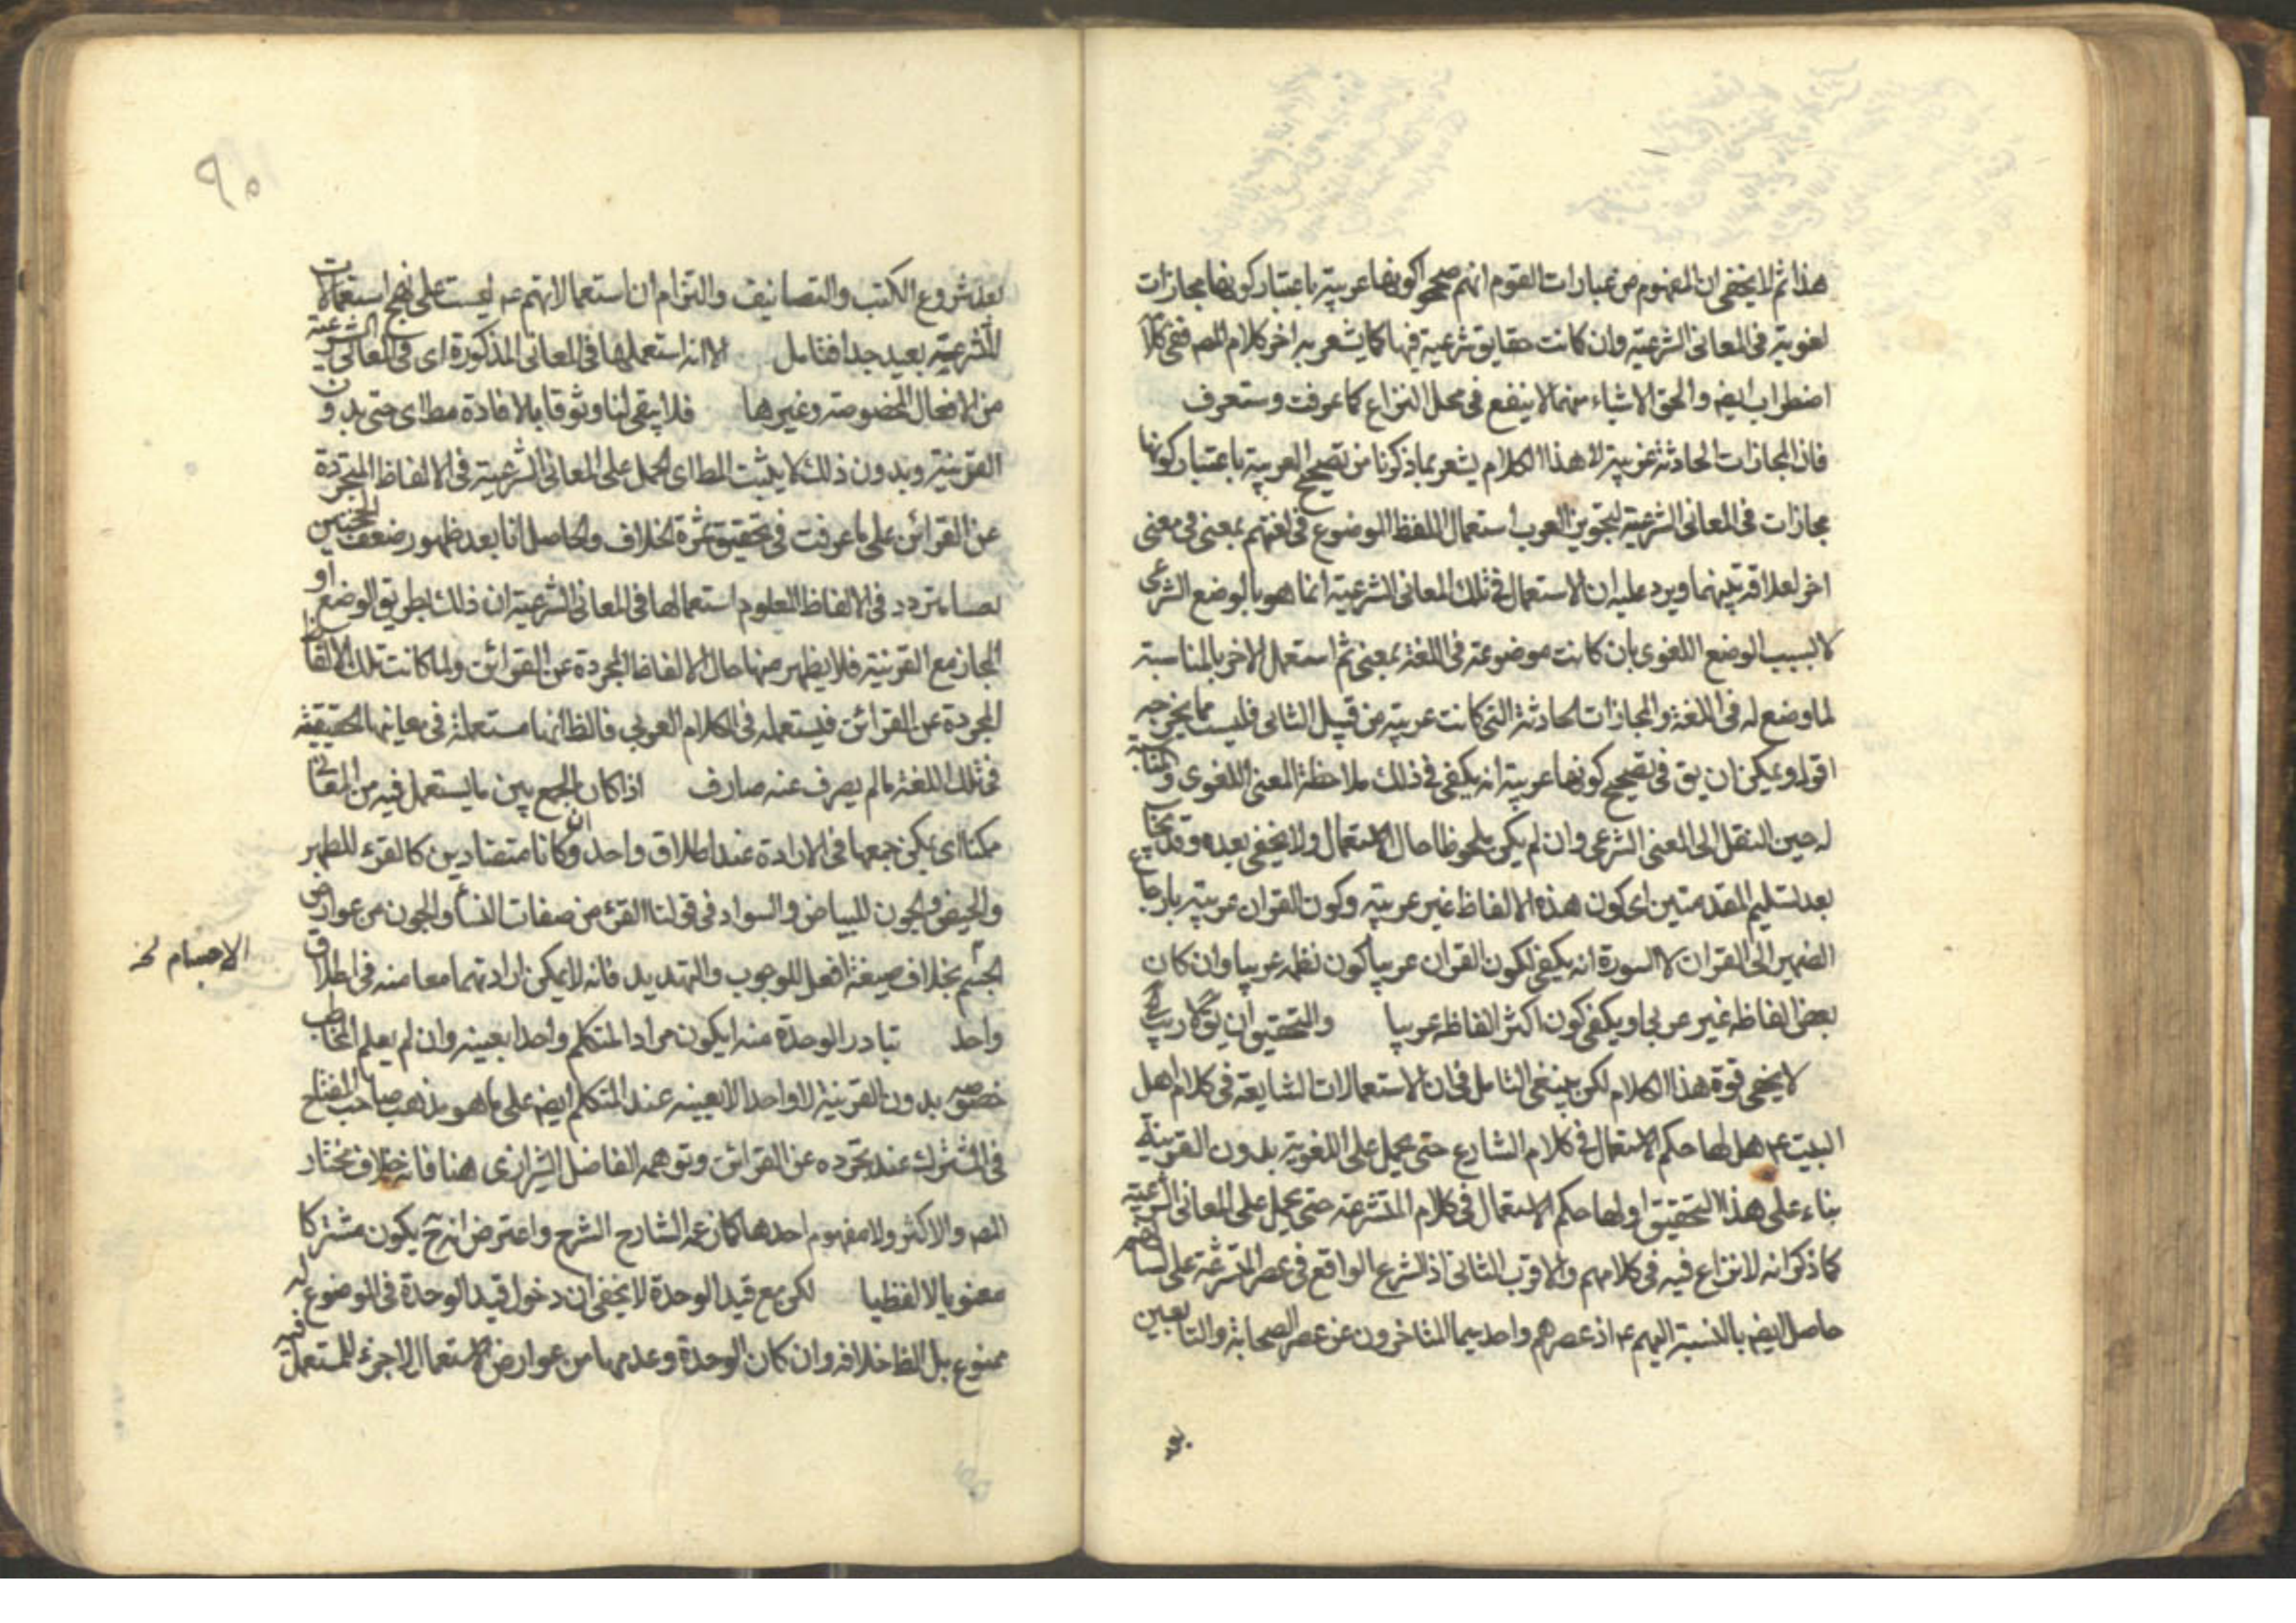 هذا ثم لا يخفى ان المفهوم من عبارات القوم انهم صححوا كونها عربية باعتبار كونها مجازات
لغوية في المعانى الشرعية وان كانت حقايق شرعية فيها كما يشعر به اخر كلام المص ففى كلا
اضطراب ايضه والحق الاشياء منهما لا ينفع في محل النزاع كما عرفت وستعرف
فان المجازات الحادثة عربية اه هذا الكلام يشعر بما ذكرنا من تصحيح العربية باعتبار كونها
مجازات في المعانى الشرعية لتجويز العرب استعمال اللفظ الموضوع في لغتهم بمعنى في معنى
اخر لعلاقة بينهما ويرد عليه ان الاستعمال في تلك المعانى الشرعية انما هو بالوضع الشرعى
لا لسبب الوضع اللغوى بان كانت موضوعة في اللغة بمعنى ثم استعمل لاخر بالمناسبة
لما وضع له في اللغة والمجازات الحادثة التى كانت عربية من قبيل الثانى فليست مما نحن فيه
اقول ويمكن ان يق في تصحيح كونها عربية انه يكفى في ذلك ملاحظة المعنى اللغوى والمناسبة
له حين النقل الى المعنى الشرعى وان لم يكن ملحوظا حال الاستعمال ولا يخفى بعده وقد يجاب
بعد تسليم المقدمتين اى كون هذه الالفاظ غير عربية وكون القران عربية بارجاع
الضمير الى القران لا السورة انه يكفى لكون القران عربيا كون نظمه عربيا وان كان
بعض الفاظه غير عربى او يكفى كون اكثر الفاظه عربيا والتحقيق ان يق لا ريب اه
لا يخفى قوة هذا الكلام لكن ينبغى التامل في ان الاستعمالات الشايعة في كلام اهل
البيت ع هل لها حكم الاستعمال في كلام الشارع حتى يحمل على اللغوية بدون القرينة
بناء على هذا التحقيق او لها حكم الاستعمال في كلام المتشرعة حتى يحمل على المعانى الشرعية
كما ذكر انه لا نزاع فيه في كلامهم والاقرب الثانى اذ الشرع الواقع في عصر المتشرعة على السنتهم
حاصل ايضه بالنسبة اليهم ع اذ عصرهم واحد سيما المتاخرون عن عصر الصحابة والتابعين
بعد
٩٥
بعد شروع الكتب والتصانيف والتزام ان استعمالاتهم ع ليست على نهج استعمالات
المتشرعة بعيد جدا فتامل الا انه استعملها في المعانى المذكورة اى في المعانى الشرعية
من الافعال المخصوصة وغيرها فلا يبقى لنا وثوق بالافادة مط اى حتى بدون
القرينة وبدون ذلك لا يثبت المط اى الحمل على المعانى الشرعية في الالفاظ المتجردة
عن القرائن على ما عرفت في تحقيق ثمرة الخلاف والحاصل انا بعد ظهور ضعف الحجتين
نتردد في الالفاظ المعلوم استعمالها في المعانى الشرعية ان ذلك بطريق الوضع او
المجاز مع القرينة فلا يظهر منها حال الالفاظ المجردة عن القرائن ولما كانت تلك الالفاظ
المجردة عن القرائن فيستعمله في الكلام العربى فالظ انها مستعملة في معانيها الحقيقية
في تلك اللغة ما لم يصرف عنه صارف اذا كان الجمع بين ما يستعمل فيه من المعانى
ممكنا اى يمكن جمعها في الارادة عند اطلاق واحد وان كانا متضادين كالقرء للطهر
والحيض والجون للبياض والسواد في قولنا القرء من صفات النساء والجون من عوارض
الجسم بخلاف صيغة افعل للوجوب والتهديد فانه لا يمكن ارادتهما معا منه في اطلاق
الاجسام نخ
واحد تبادر الوحدة منه ايكون مراد المتكلم واحدا بعينه وان لم يعلم المخاطب
خصوصه بدون القرينة لا واحد الا بعينه عند المتكلم ايضه على ما هو مذهب صاحب المفتاح
في المشترك عند تجرده عن القرائن وتوهمه الفاضل الشيرازى هنا فانه خلاف مختار
المص والاكثر ولا مفهوم احدها كما زعمه الشارح الشرح واعترض انه ح يكون مشتركا
معنويا لا لفظيا لكن مع قيد الوحدة لا يخفى ان دخول قيد الوحدة في الموضوع له
ممنوع بل الظ خلافه وان كان الوحدة وعدمها من عوارض الاستعمال لا جزء للمستعمل فيه